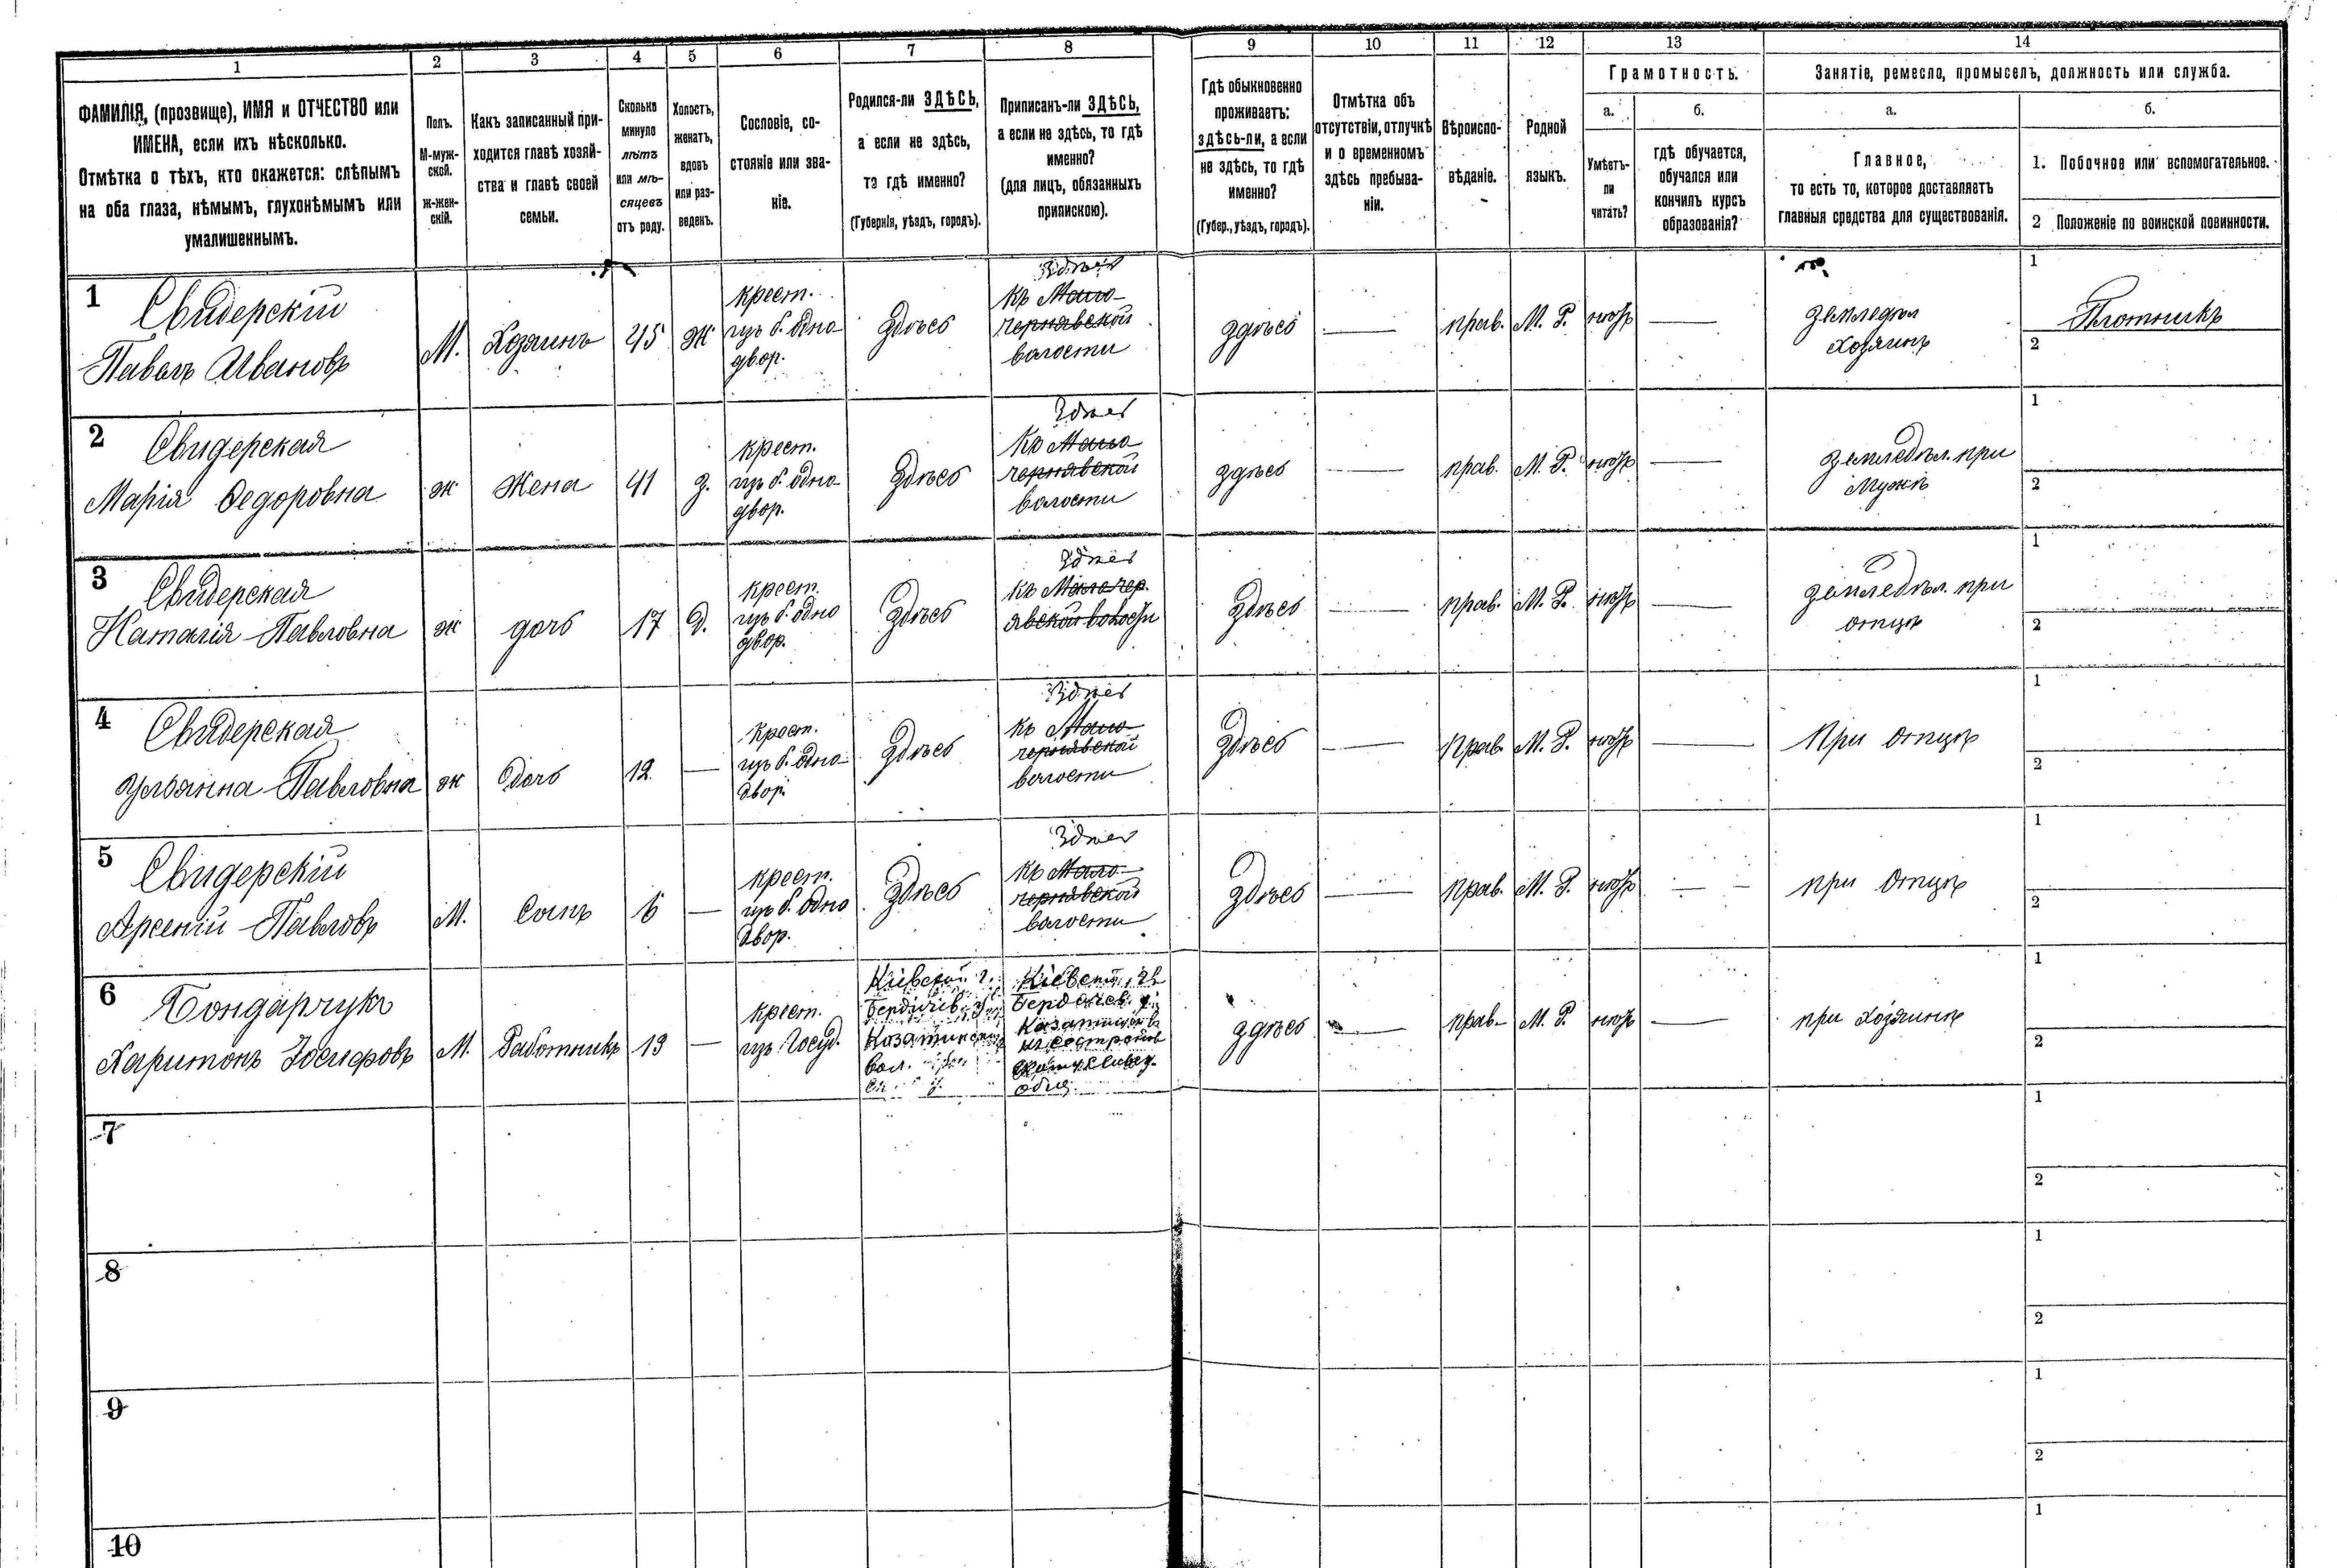 1 2 3 4 5 6 7 8 9 10 11 12 13 14
ФАМИЛІЯ, (прозвище), ИМЯ и ОТЧЕСТВО или
ИМЕНА, если ихъ нѣсколько.
Отмѣтка о тѣхъ, кто окажется: слѣпымъ
на оба глаза, нѣмымъ, глухонѣмымъ или
умалишеннымъ.
Полъ.
М-муж-
ской.
ж-жен-
скій.
Какъ записанный при-
ходится главѣ хозяй-
ства и главѣ своей
семьи.
Сколько
минуло
лѣтъ
или мѣ-
сяцевъ
отъ роду.
Холостъ,
женатъ,
вдовъ
или раз-
веденъ.
Сословіе, со-
стояніе или зва-
ніе.
Родился-ли ЗДѢСЬ,
а если не здѣсь,
то гдѣ именно?
(Губернія, уѣздъ, городъ).
Приписанъ-ли ЗДѢСЬ,
а если не здѣсь, то гдѣ
именно?
(для лицъ, обязанныхъ
припискою).
Гдѣ обыкновенно
проживаетъ:
здѣсь-ли, а если
не здѣсь, то гдѣ
именно?
(Губер., уѣздъ, городъ).
Отмѣтка объ
отсутствіи, отлучкѣ
и о временномъ
здѣсь пребыва-
ніи.
Вѣроиспо-
вѣданіе.
Родной
языкъ.
Грамотность.
а.
Умѣетъ-
ли
читать?
б.
гдѣ обучается,
обучался или
кончилъ курсъ
образованія?
Занятіе, ремесло, промыселъ, должность или служба.
а.
Главное,
то есть то, которое доставляетъ
главныя средства для существованія.
б.
1. Побочное или вспомогательное.
2 Положеніе по воинской повинности.
1
Свидерскій
Павелъ Ивановъ
М.
Хозяинъ
45
Ж
крест.
изъ б. одно
двор.
Здѣсь
Здѣсь
къ Мало-
чернявской
волости
здѣсь
—
прав.
М. Р.
нѣтъ
—
земледѣл
хозяинъ
1
Плотникъ
2
2
Свидерская
Марія Ѳедоровна
ж
Жена
41
з.
крест.
изъ б. одно
двор.
Здѣсь
Здѣсь
Къ Мало
чернявской
волости
здѣсь
—
прав.
М. Р.
нѣтъ
—
земледѣл. при
мужѣ
1
2
3
Свидерская
Наталія Павловна
ж
дочь
17
Д.
крест.
изъ б. одно
двор.
Здѣсь
Здѣсь
къ Малочер.
явской волости
Здѣсь
—
прав.
М. Р.
нѣтъ
—
земледѣл. при
отцѣ
1
2
4
Свидерская
Ульянна Павловна
ж
Дочь
12
—
крест.
изъ б. одно
двор.
Здѣсь
Здѣсь
къ Мало-
чернявской
волости
Здѣсь
—
прав.
М. Р.
нѣтъ
—
При отцѣ
1
2
5
Свидерскій
Арсеній Павловъ
М.
Сынъ
6
—
крест.
изъ б. одно
двор.
Здѣсь
Здѣсь
къ Мало-
чернявской
волости
Здѣсь
—
прав.
М. Р.
нѣтъ
— —
при Отцѣ
1
2
6
Бондарчукъ
Харитонъ Іосифовъ
М.
Работникъ
13
—
крест.
изъ Госуд.
Кіевской г.
Бердичев. у.
Казатинской
вол.
Кіевской г.
Бердичев. у.
общ.
здѣсь
—
прав.
М. Р.
нѣтъ
—
при хозяинѣ
1
2
7
1
2
8
1
2
9
1
2
10
1